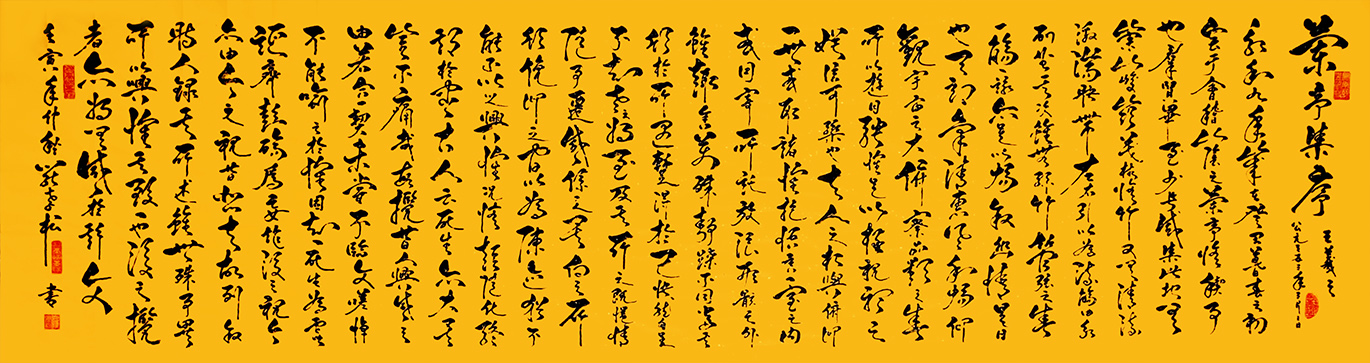 蘭亭集序
王羲之
公元三五三年三月三日
永和九年歲在癸丑暮春之初
會于會稽山陰之蘭亭修禊事
也羣賢畢至少長咸集此地有
崇山峻領茂林脩竹又有清流
激湍映帶左右引以為流觴曲水
列坐其次雖無絲竹管弦之盛
一觴一詠亦足以暢敘幽情是日
也天朗氣清惠風和暢仰
觀宇宙之大俯察品類之盛
所以遊目騁懷足以極視聽之
娛信可樂也夫人之相與俯仰
一世或取諸懷抱悟言一室之內
或因寄所託放浪形骸之外
雖趣舍萬殊靜躁不同當其
欣於所遇暫得於己快然自足
不知老之將至及其所之既倦情
隨事遷感慨係之矣向之所
欣俛仰之間以為陳迹猶不
能不以之興懷況脩短隨化終
期於盡古人云死生亦大矣
豈不痛哉每攬昔人興感之
由若合一契未嘗不臨文嗟悼
不能喻之於懷固知一死生為虛
誕齊彭殤為妄作後之視今
亦由今之視昔悲夫故列敘
時人錄其所述雖世殊事異
所以興懷其致一也後之攬
者亦將有感於斯文
壬寅年 書